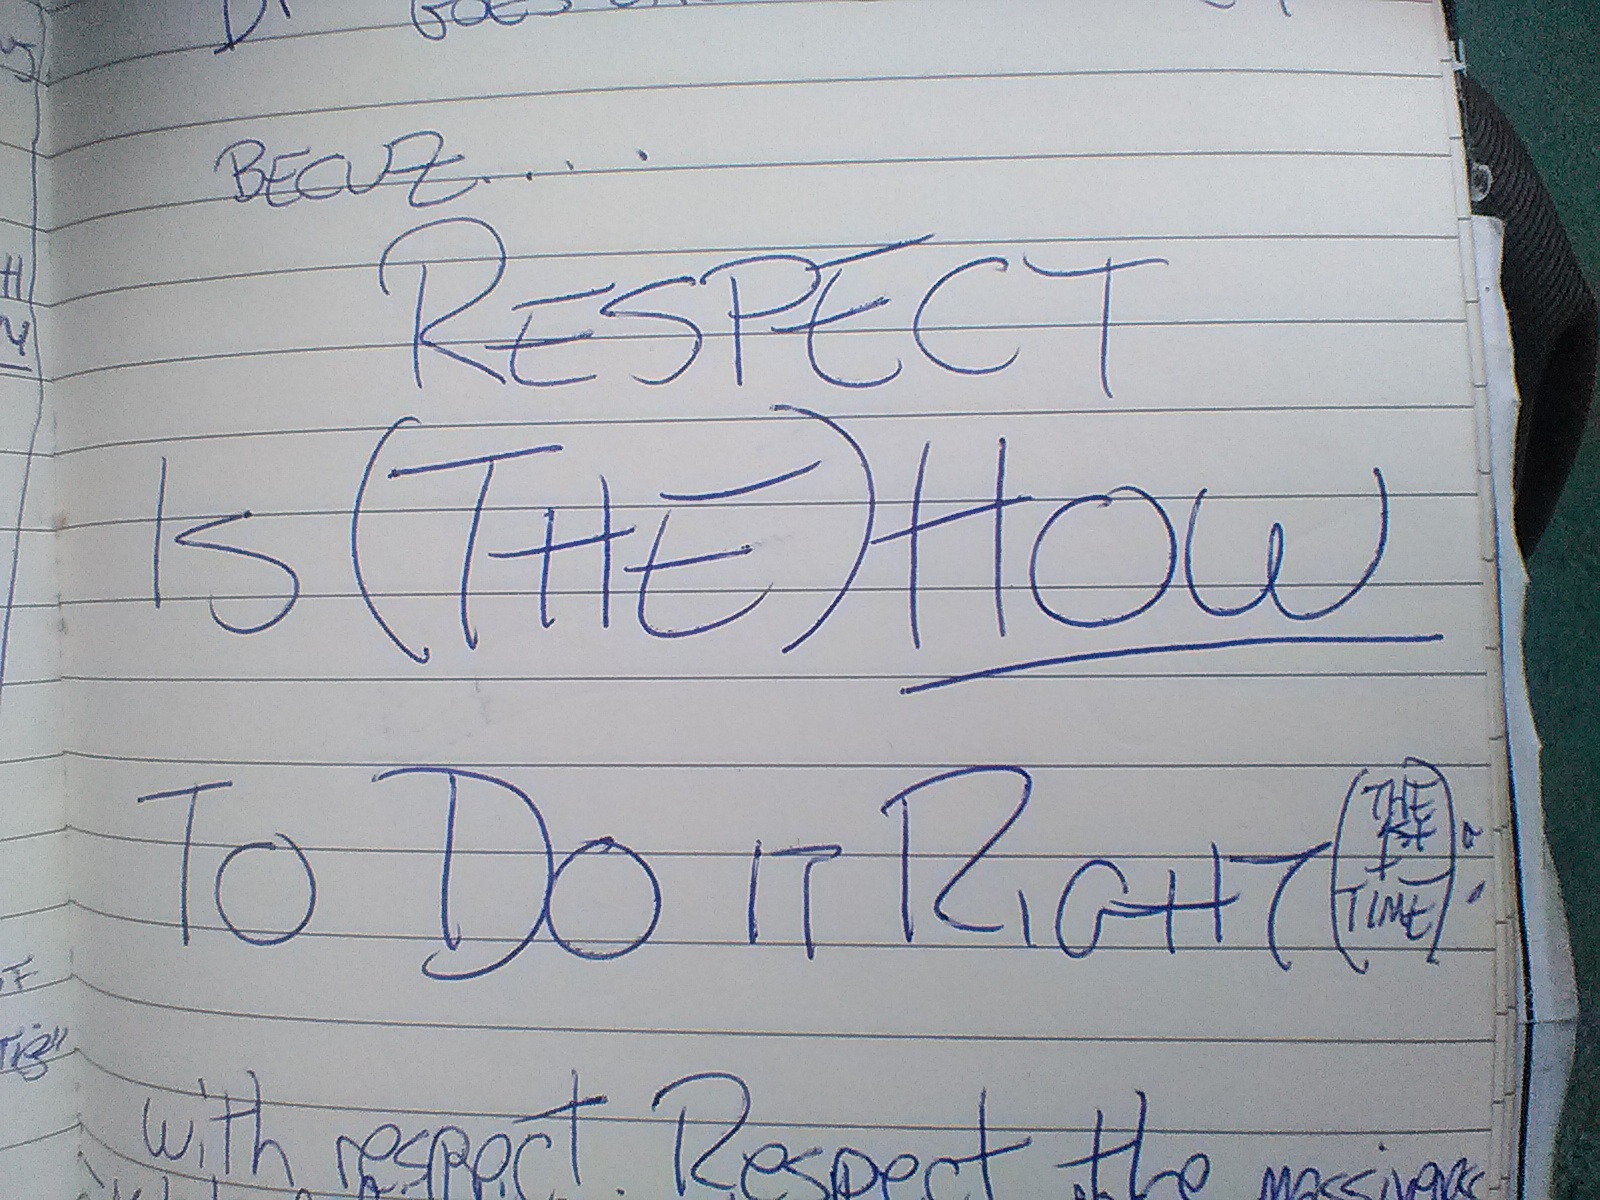 GOES
BECUZ....
RESPECT
IS (THE) HOW
TO DO IT RIGHT (THE 1ST TIME)
with respect. Respect the massiveness